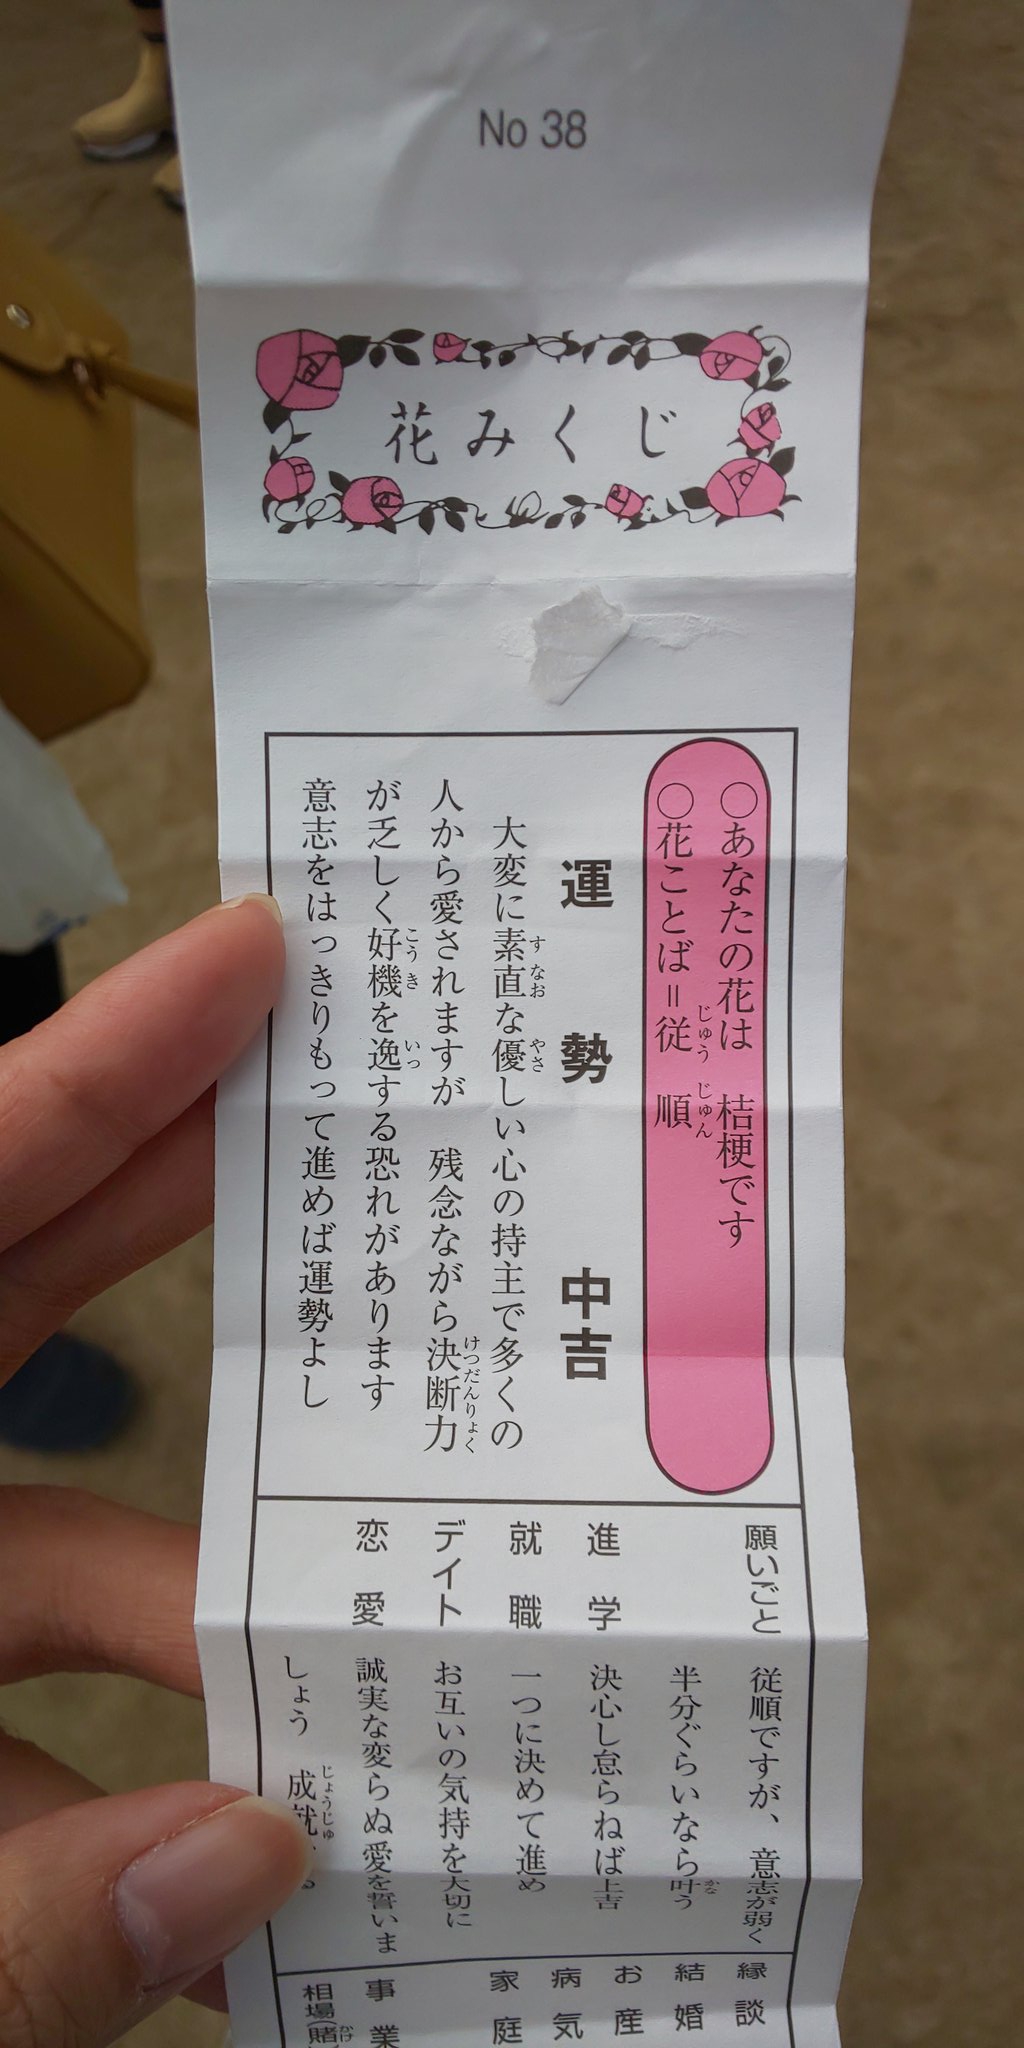 No 38
花みくじ
○あなたの花は 桔梗です
○花ことば＝従順
じゅう じゅん
運勢 中吉
大変に素直な優しい心の持主で多くの
すなお やさ
人から愛されますが 残念ながら決断力
けつだんりょく
が乏しく好機を逸する恐れがあります
こうき いっ
意志をはっきりもって進めば運勢よし
願いごと 従順ですが、意志が弱く
半分ぐらいなら叶う
かな
進学 決心し怠らねば上吉
就職 一つに決めて進め
デイト お互いの気持を大切に
恋愛 誠実な変らぬ愛を誓いま
しょう 成就
じょうじゅ
縁談
結婚
お産
病気
家庭
事業
相場(賭
かけ